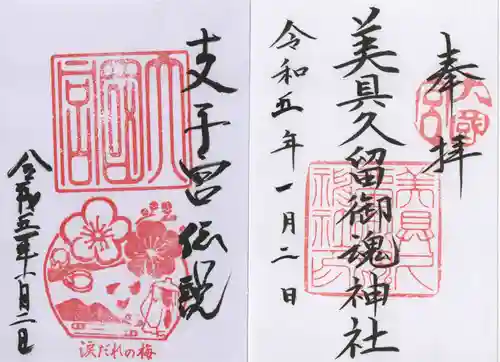 奉拝
美具久留御魂神社
令和五年一月二日
支子宮伝説
令和五年一月二日
涙だれの梅